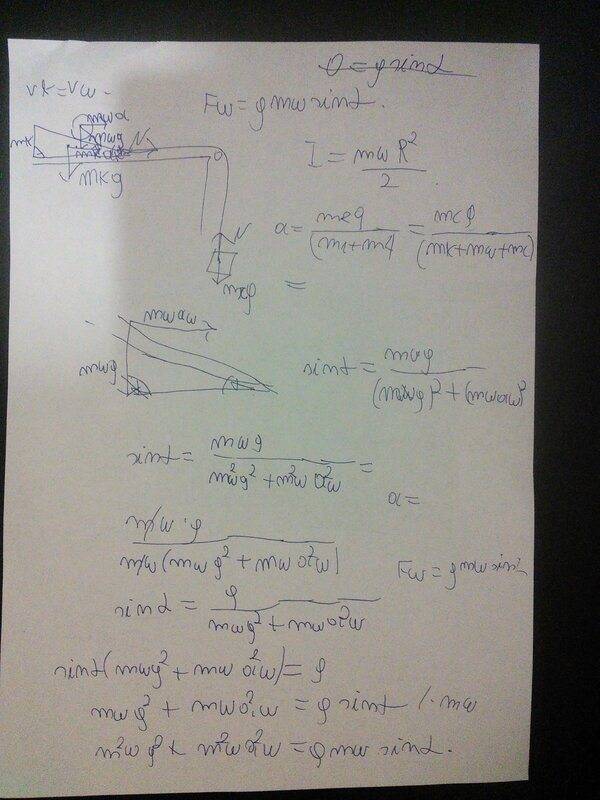 0 = g sinα
Vk = Vw
Fw = g mw sinα.
mwa
mwg
mk
N
Mkg
I = mw R² / 2
N
a = mcg / (mc+mk) = mcg / (mk+mw+mc)
mcg =
mwaw
mwg
α
sinα = mwg / (mwg)² + (mwaw)²
sinα = mwg / m²wg² + m²w a²w =
a =
mw · g / mw (mwg² + mw a²w)
Fw = g mw sinα
sinα = g / mwg² + mw a²w
sinα (mwg² + mw a²w) = g
mwg² + mw a²w = g sinα / · mw
m²w g² + m²w a²w = g mw sinα.